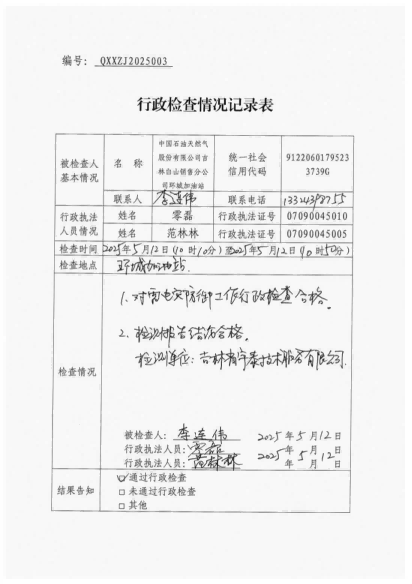 编号: QXXZJ2025003
行政检查情况记录表
被检查人
基本情况
名 称
中国石油天然气
股份有限公司吉
林白山销售分公
司环城加油站
统一社会
信用代码
9122060179523
3739G
联系人
李连伟
联系电话
行政执法
人员情况
姓名
零磊
行政执法证号
07090045010
姓名
范林林
行政执法证号
07090045005
检查时间
2025年5月12日(10时10分)至2025年5月12日(10时50分)
检查地点
环城加油站
检查情况
1.对雷电灾防御工作行政检查合格。
2.检测报告结论合格。
检测单位:吉林省宇泰技术服务有限公司.
被检查人: 李连伟 2025年5月12日
行政执法人员: 零磊 2025年5月12日
行政执法人员: 范林林 年 月 日
结果告知
☑通过行政检查
□未通过行政检查
□其他